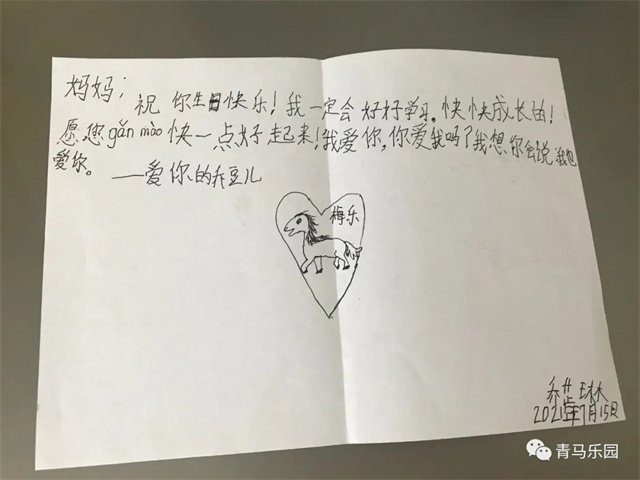 妈妈:
祝 你生日快乐！我一定会好好学习,快快成长的！
愿您gǎn mào快一点好起来！我爱你,你爱我吗？我想你会说我也
爱你。 ——爱你的乔豆儿
梅乐
2021年7月15日
青马乐园